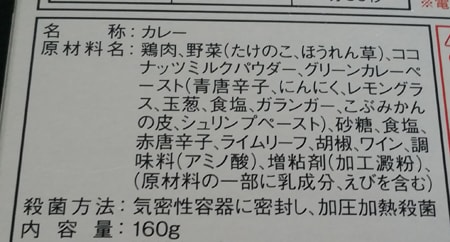 名　　称：カレー
原材料名：鶏肉、野菜（たけのこ、ほうれん草）、ココ
ナッツミルクパウダー、グリーンカレーペ
ースト（青唐辛子、にんにく、レモングラ
ス、玉葱、食塩、ガランガー、こぶみかん
の皮、シュリンプペースト）、砂糖、食塩、
赤唐辛子、ライムリーフ、胡椒、ワイン、調
味料（アミノ酸）、増粘剤（加工澱粉）、
（原材料の一部に乳成分、えびを含む）
殺菌方法：気密性容器に密封し、加圧加熱殺菌
内 容 量：160g